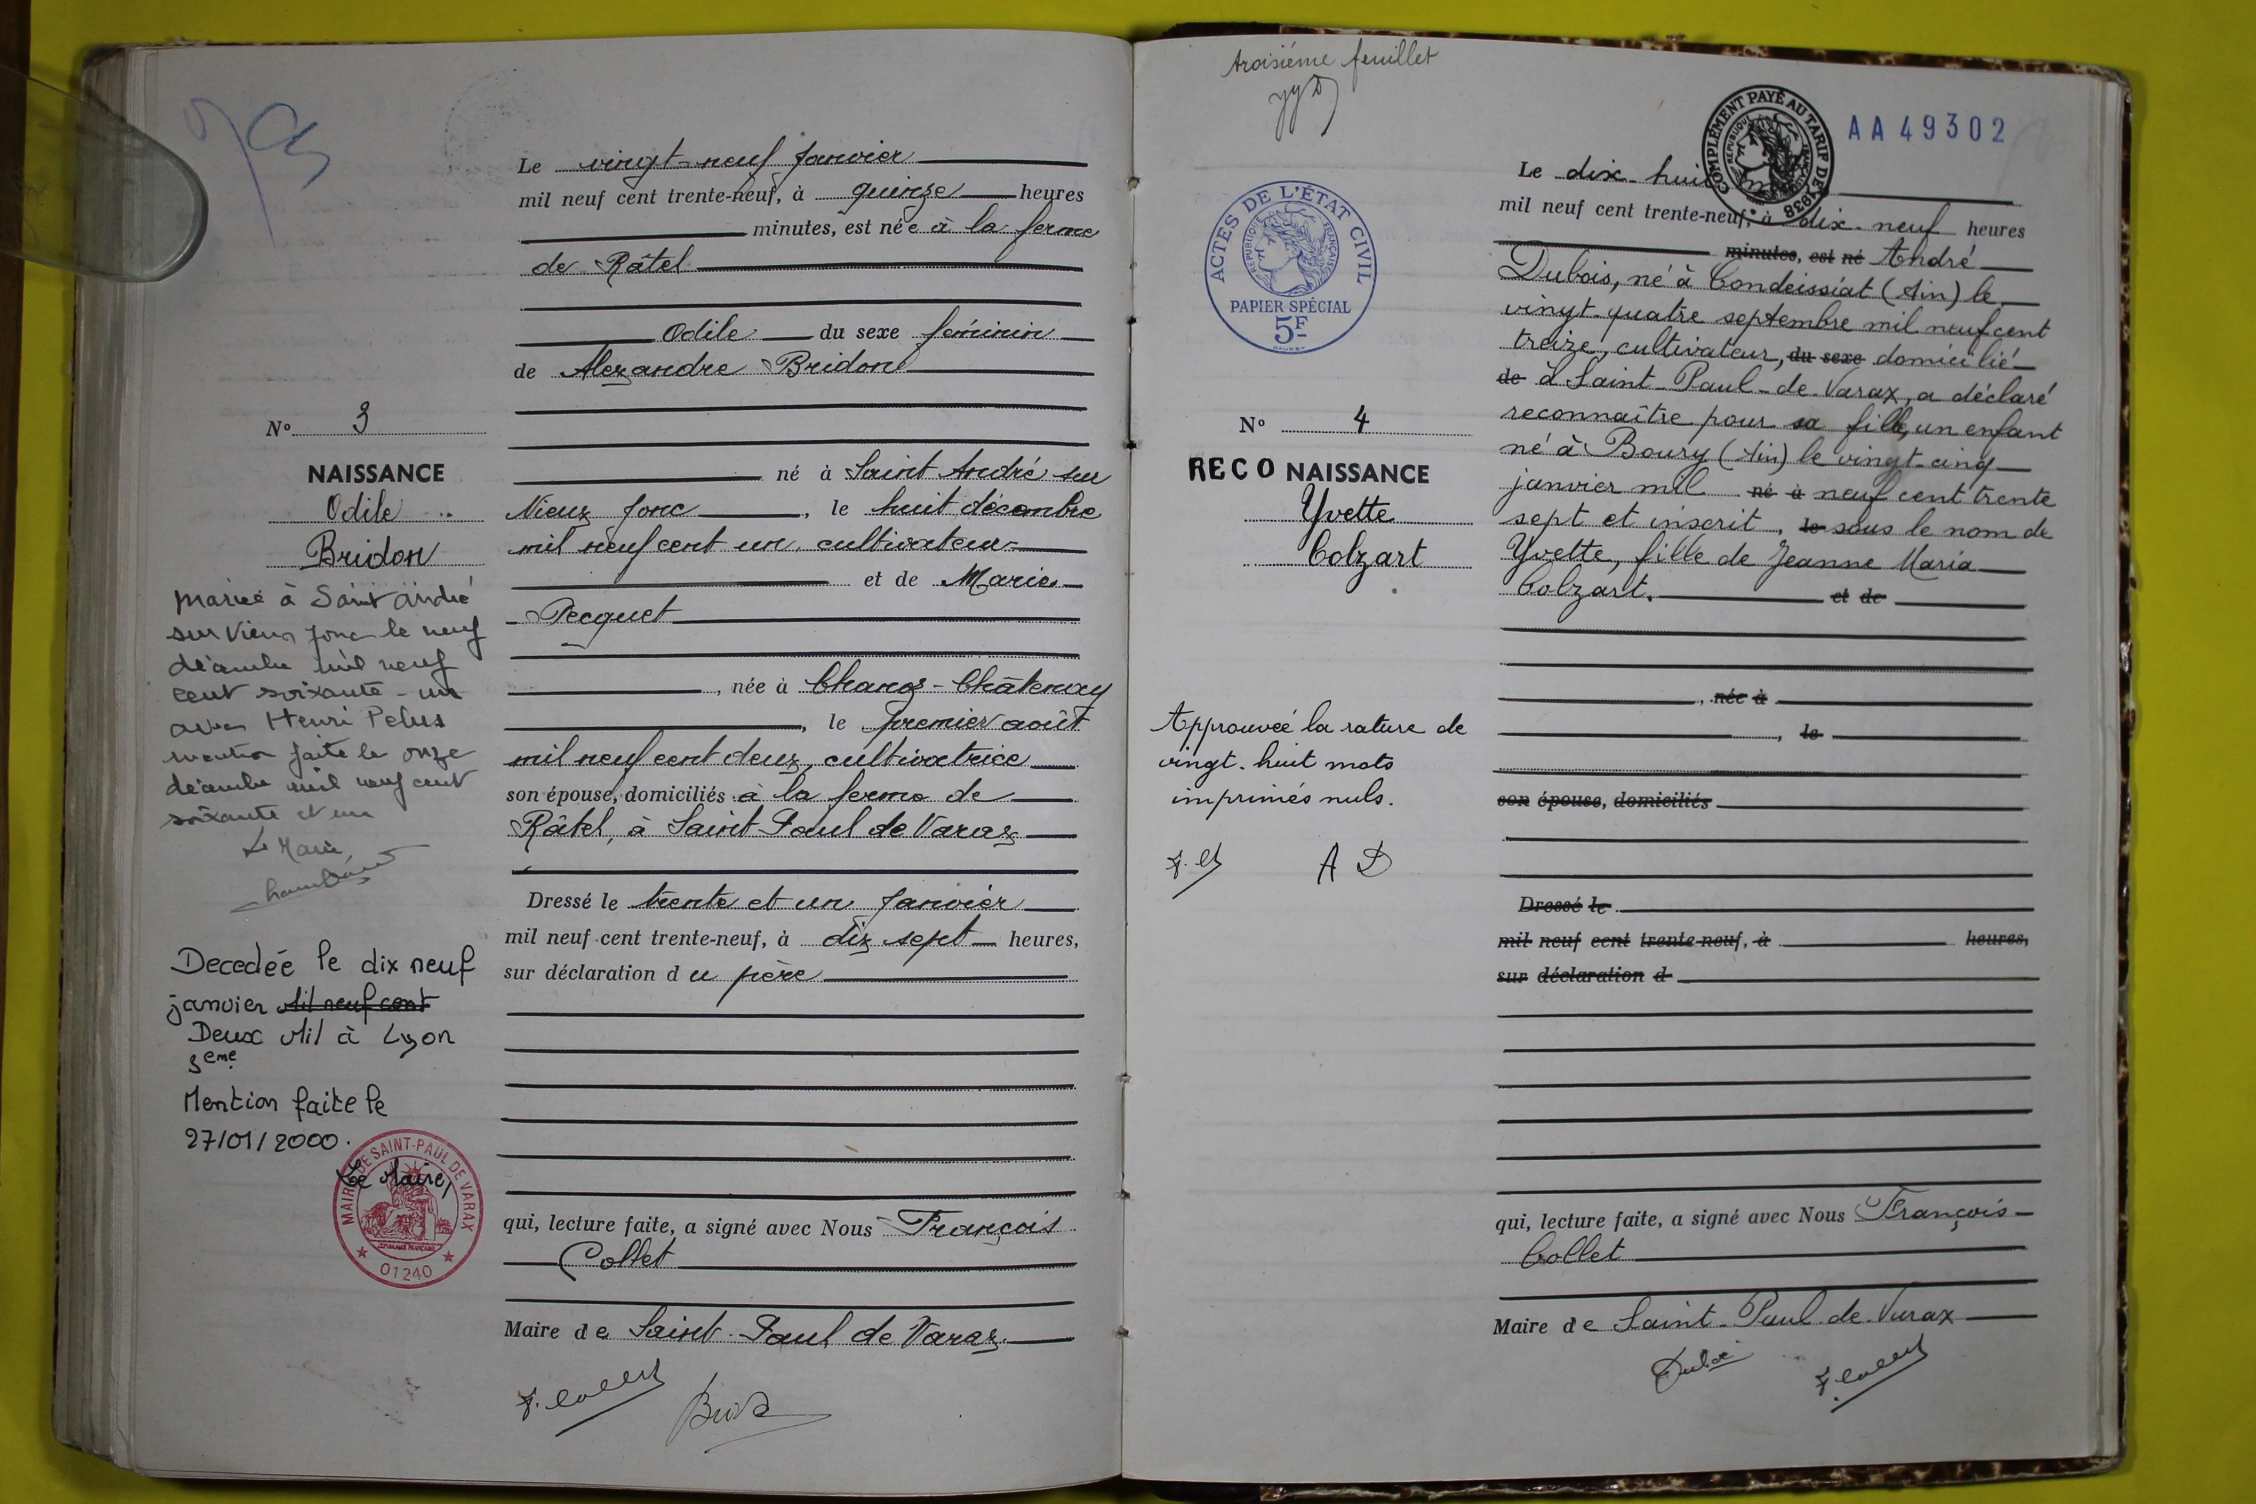 Le vingt-neuf Janvier
mil neuf cent trente-neuf, à quinze heures
minutes, est née à la ferme
de Râtel
Odile du sexe féminin
de Alexandre Bridon
né à Saint André sur
Vieux Jonc, le huit décembre
mil neuf cent un, cultivateur
et de Marie
Pecquet
, née à Chanoz-Châtenay
, le premier août
mil neuf cent deux, cultivatrice
son épouse, domiciliés à la ferme de
Râtel, à Saint Paul de Varax
Dressé le trente et un Janvier
mil neuf cent trente-neuf, à dix sept heures,
sur déclaration du père
qui, lecture faite, a signé avec Nous François
Collet
Maire de Saint-Paul de Varax
F. Collet
No 3
NAISSANCE
Odile
Bridon
Mariée à Saint André
sur Vieux Jonc le neuf
décembre mil neuf
cent soixante-un
avec Henri Pelus
mention faite le onze
décembre mil neuf cent
soixante et un
Le Maire
Decedée le dix neuf
janvier Mil neuf cent
Deux Mil à Lyon
3eme
Mention faite le
27/01/2000.
Le Maire,
MAIRIE DE SAINT-PAUL DE VARAX
01240
troisième feuillet
ACTES DE L'ÉTAT CIVIL
RÉPUBLIQUE FRANÇAISE
PAPIER SPÉCIAL
5F
COMPLÉMENT PAYÉ AU TARIF DE 1938
AA 49302
No 4
RECONAISSANCE
Yvette
Colzart
Approuvée la rature de
vingt-huit mots
imprimés nuls.
A D
Le dix-huit
mil neuf cent trente-neuf, à dix-neuf heures
minutes, est né André
Dubois, né à Condeissiat (Ain) le
vingt-quatre septembre mil neuf cent
treize, cultivateur, du sexe domicilié
de à Saint-Paul-de-Varax, a déclaré
reconnaître pour sa fille, un enfant
né à Bourg (Ain) le vingt-cinq
janvier mil né à neuf cent trente
sept et inscrit, le sous le nom de
Yvette, fille de Jeanne Maria
Colzart. et de
, née à
, le
son épouse, domiciliés
Dressé le
mil neuf cent trente-neuf, à heures,
sur déclaration d
qui, lecture faite, a signé avec Nous François
Collet
Maire de Saint-Paul-de-Varax
Dubois F. Collet